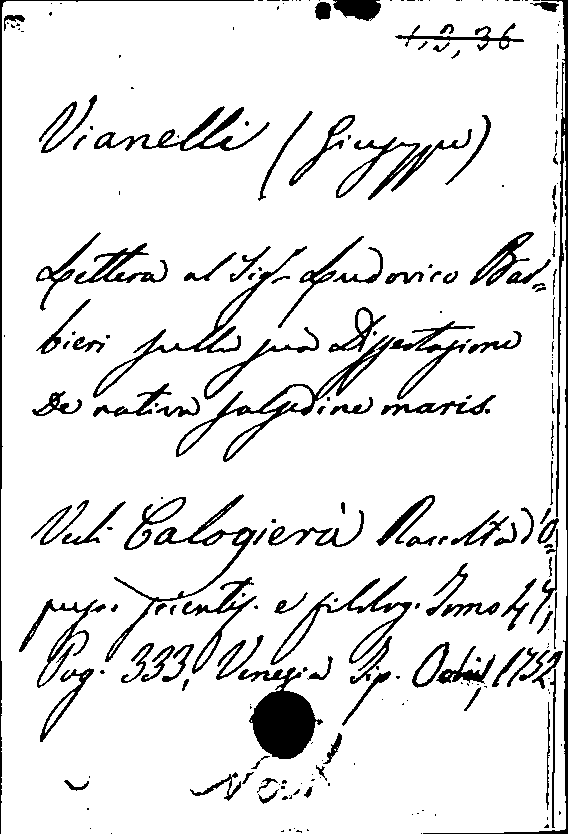 1, 3, 36
Vianelli (Giuseppe)
Lettera al Sigr Ludovico Bar=
bieri sulla sua Dissertazione
De nativa salsedine maris.
Vedi Calogierà Raccolta d'O=
pusc. scientif. e filolog. Tomo 47,
Pag. 333, Venezia Tip. 1752.